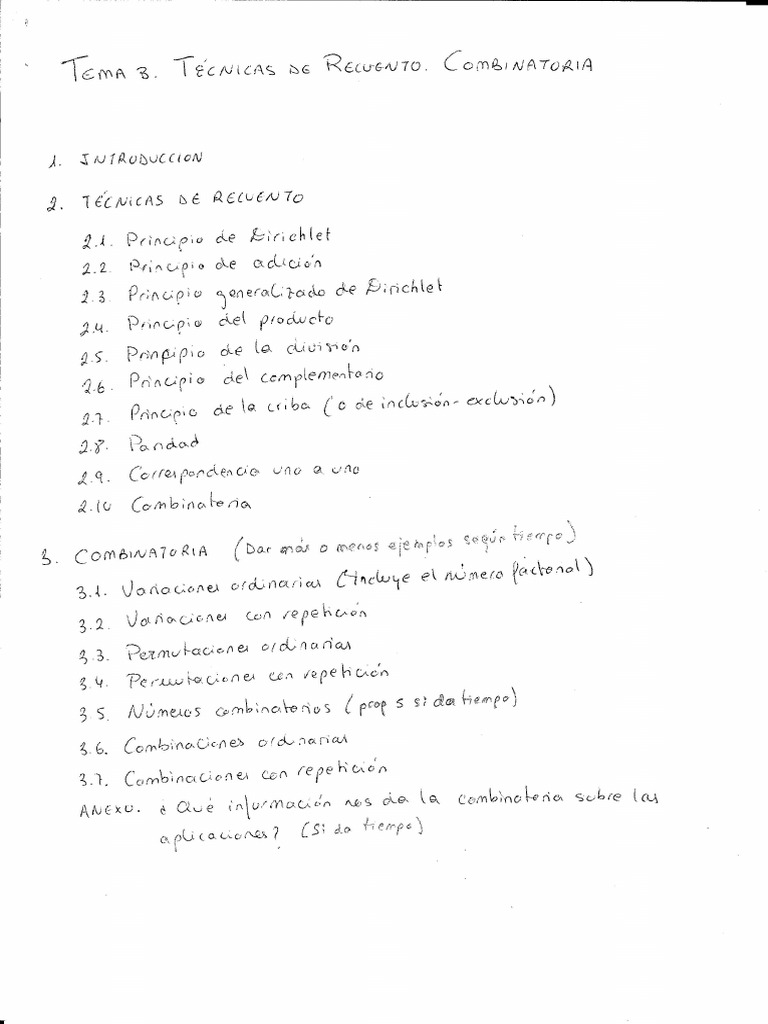 TEMA 3. TÉCNICAS DE RECUENTO. COMBINATORIA
1. INTRODUCCION
2. TÉCNICAS DE RECUENTO
2.1. Principio de Dirichlet
2.2. Principio de adición
2.3. Principio generalizado de Dirichlet
2.4. Principio del producto
2.5. Prinpipio de la división
2.6. Principio del complementario
2.7. Principio de la criba (o de inclusión-exclusión)
2.8. Paridad
2.9. Correspondencia uno a uno
2.10 Combinatoria
3. COMBINATORIA (Dar más o menos ejemplos según tiempo)
3.1. Variaciones ordinarias (Incluye el número factorial)
3.2. Variaciones con repetición
3.3. Permutaciones ordinarias
3.4. Permutaciones con repetición
3.5. Números combinatorios (prop 5 si da tiempo)
3.6. Combinaciones ordinarias
3.7. Combinaciones con repetición
ANEXO. ¿Qué información nos da la combinatoria sobre las
aplicaciones? (Si da tiempo)